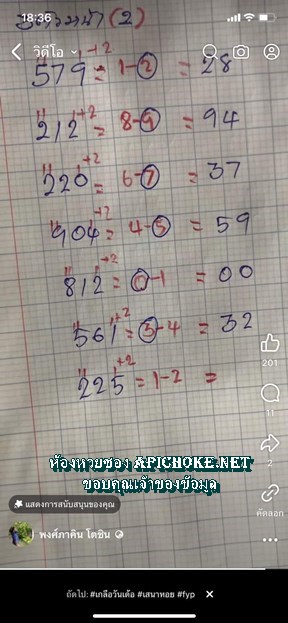 18:36
วิดีโอ
579 = 1-2 = 28
212 = 8-9 = 94
220 = 6-7 = 37
904 = 4-5 = 59
812 = 0-1 = 00
561 = 3-4 = 32
225 = 1-2 =
ห้องหวยซอง APICHOKE.NET
ขอบคุณเจ้าของข้อมูล
201
11
2
คัดลอก
แสดงการสนับสนุนของคุณ
พงศ์ภาคิน โตชิน
ถัดไป: #เกลือวันเด้อ #เสนาหอย #fyp